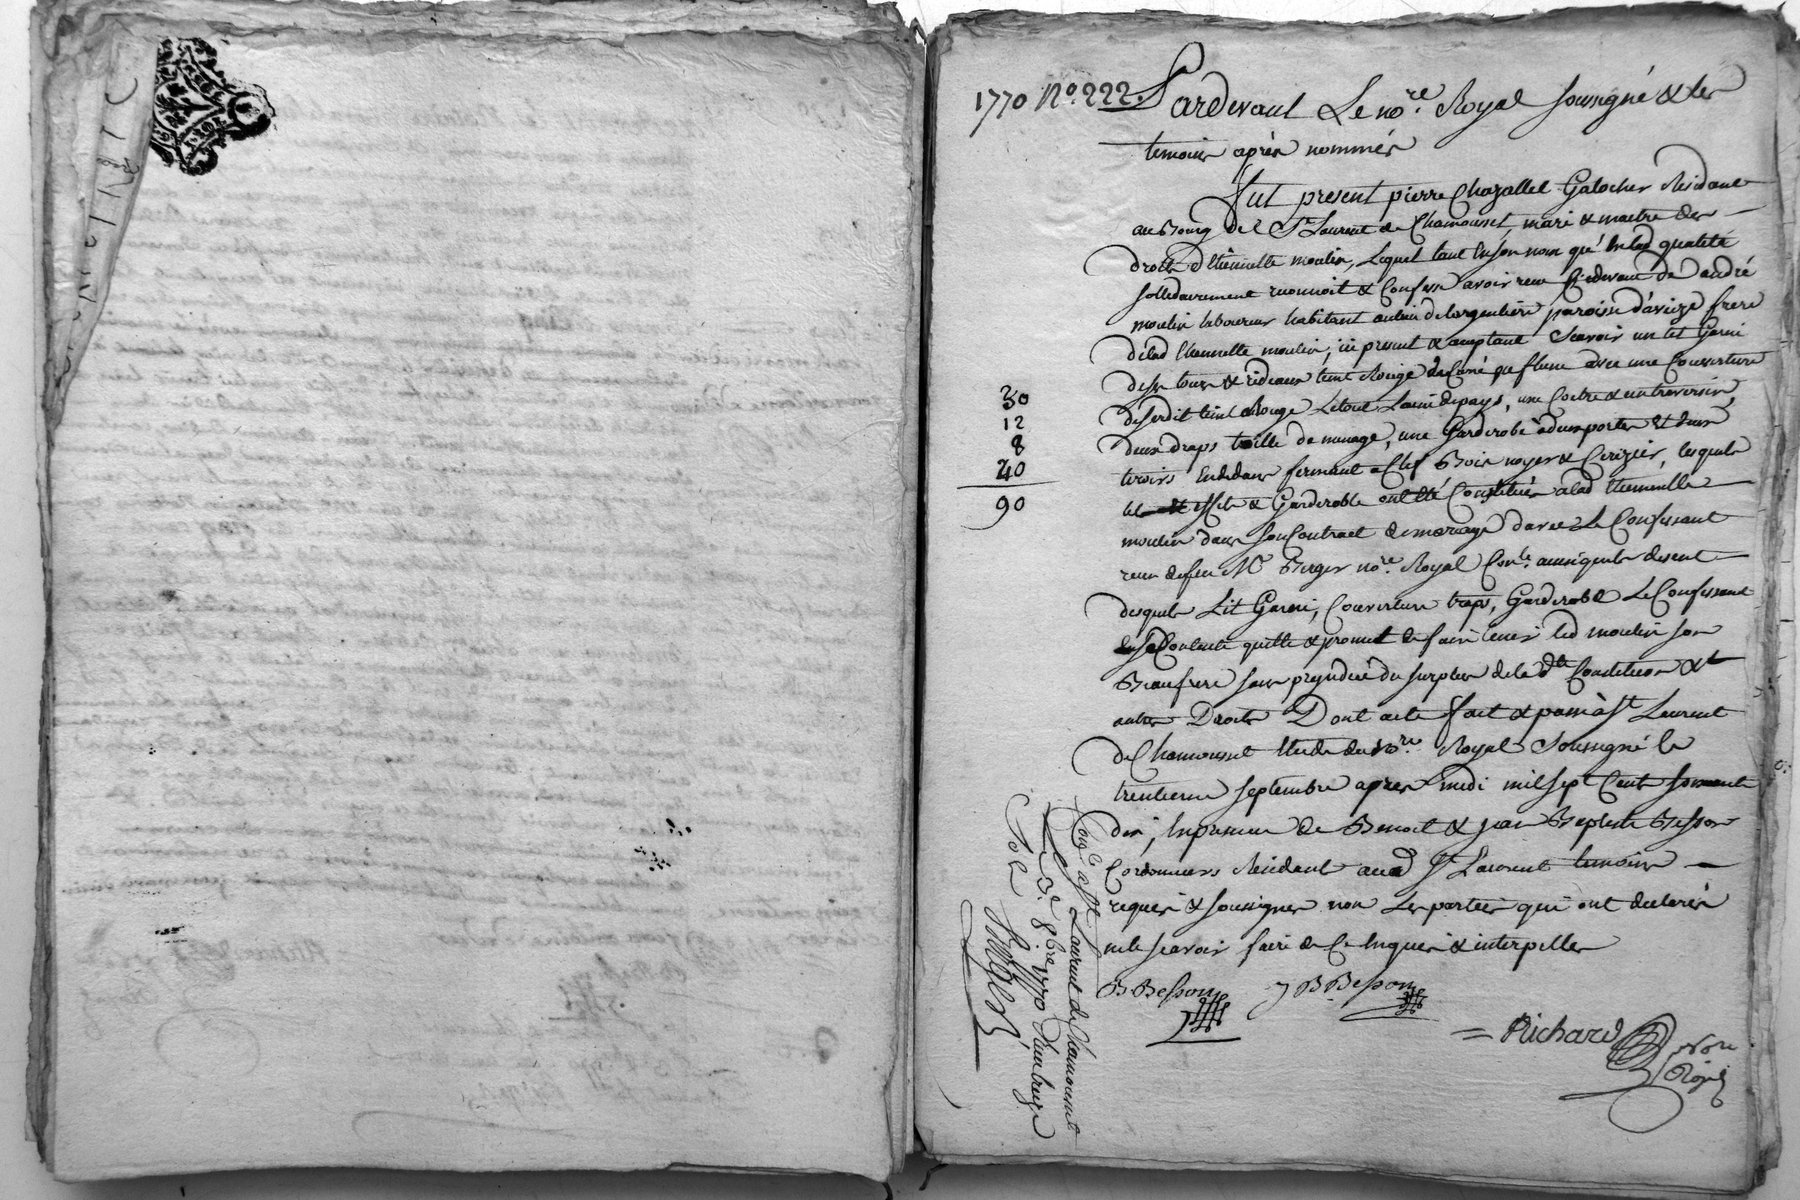 1770 No. 222.
Pardevant Le nore. Royal soussigné & les
temoins après nommés
fut present pierre Chazallet Galocher Residant
au Bourg de St Laurent de Chamousset, mari & maitre des
droits d'Etiennette moulin, Lequel tant En son nom qu'en lad qualité
sollidairement reconnoit & Confesse avoir reçu Cydevant de andré
moulin laboureur habitant au lieu de largentière paroisse d'aveize frere
de lad Etiennette moulin, ici present & acceptant Scavoir un lit Garni
de ses tours & rideaux teint Rouge avec une Couverture
teint Rouge Le tout Laine de pays, une Coitre & un traversin,
deux draps toille de menage, une Garderobe à deux portes Et deux
tiroirs En dedans fermant a Clef Bois noyer & Cerizier, lesquels
lit & Garderobe ont été Constitués a lad Etiennette
moulin dans son Contract de mariage d'avec Le Confessant
reçu de feu Me Berger nore. Royal
desquels Lit Garni, Couverture traps, Garderobe Le Confessant
se Contente quitte & promet de faire tenir led moulin son
Beaufrere sans prejudice du surplus de lade Constitution &
autres Droits Dont acte fait & passé à St Laurent
de Chamousset Etude dud nore. Royal Soussigné le
trentieme septembre après midi mil sept Cents soixante
dix, En presence de Benoit & jean Baptiste Besson
Cordonniers Residant aud St Laurent temoins
requis & soussignes non Les parties qui ont declarés
ne le scavoir faire de Ce Enquis & interpellés
B Besson
J B Besson
Richard
nore
Royal
30
12
8
40
90
Conlé a St Laurent de Chamousset
Le 3e. 8bre 1770